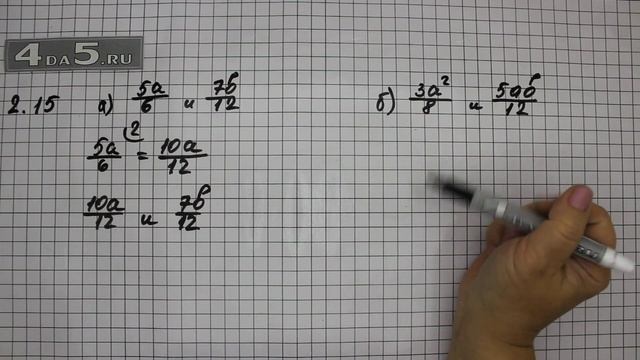 4DA5.RU
2.15 а) 5a/6 и 7b/12
5a/6 ⁽² = 10a/12
10a/12 и 7b/12
б) 3a²/8 и 5ab/12